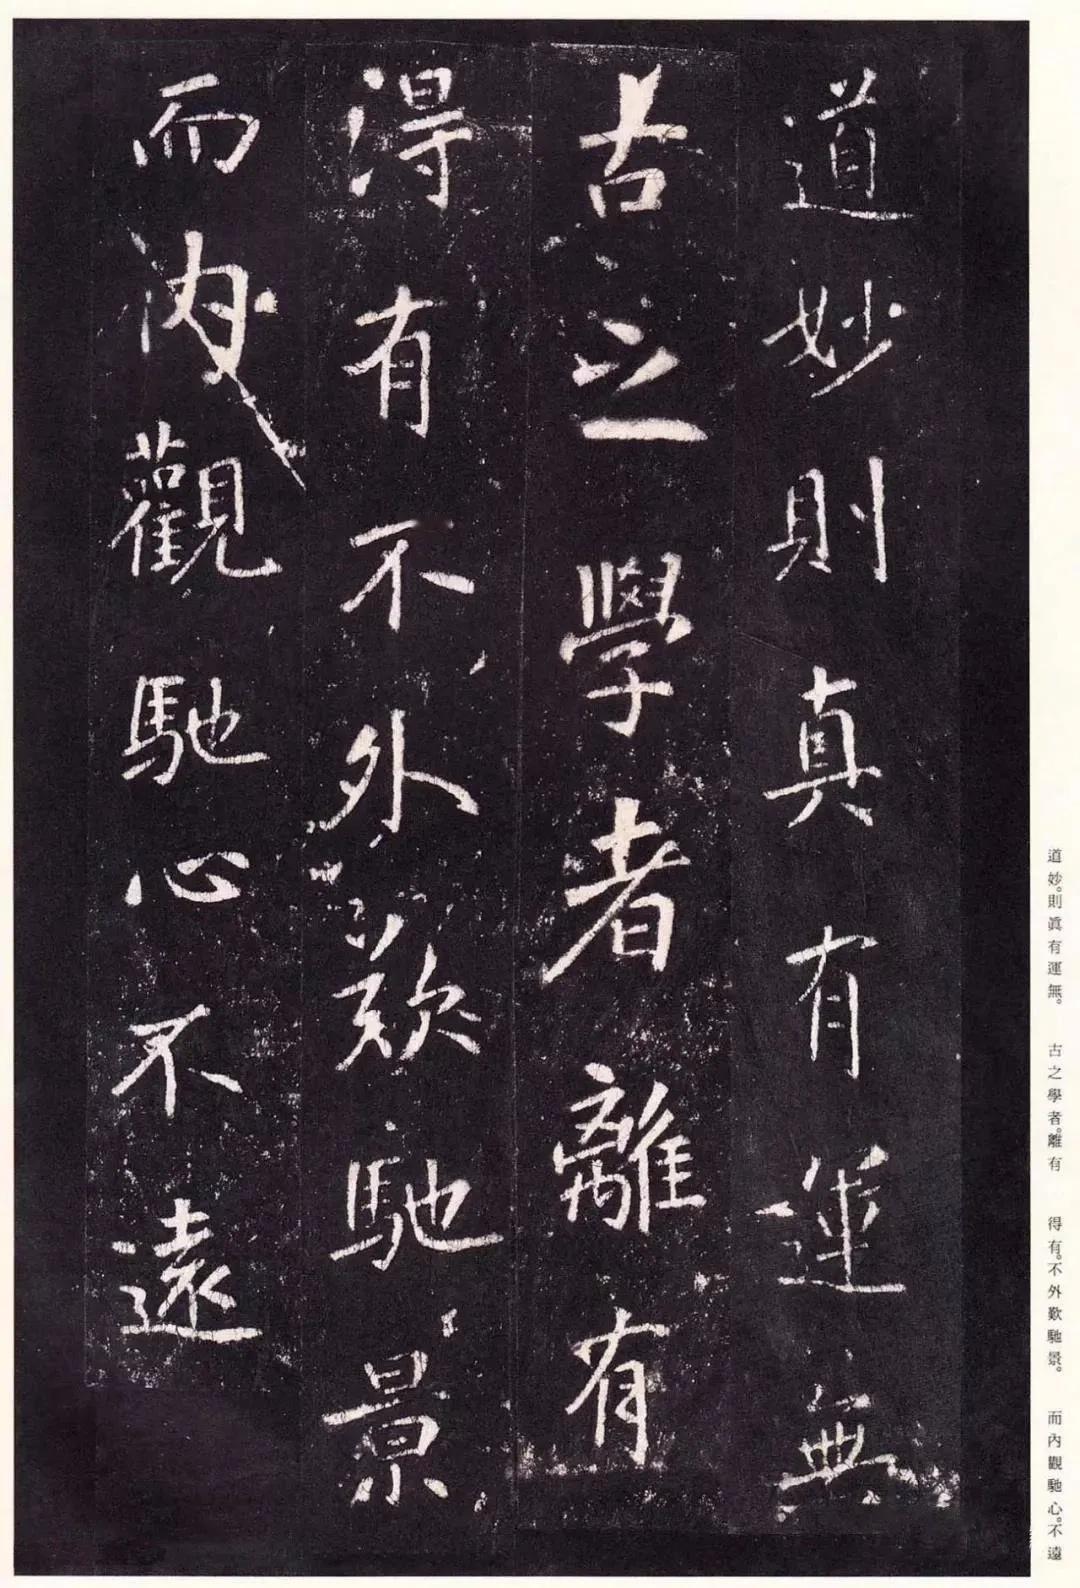 道妙則真有運無
古之學者離有
得有不外歎馳景
而內觀馳心不遠
道妙。則眞有運無。　古之學者。離有　得有。不外歎馳景。　而內觀馳心。不遠